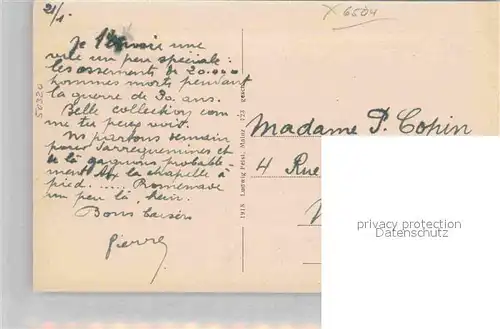 21/1.
Je t'envoie une
vue un peu spéciale :
les ossements de 20.000
hommes morts pendant
la guerre de 30 ans.
Belle collection com
me tu peux voir.
Ns partons demain
pour Sarreguemines et
de là gagnons probable-
ment la chapelle à
pied...... Promenade
un peu là, hein.
Bons baisers
Pierre
1918 Ludwig Feist, Mainz 173 gesch.
x 6504
50320
Madame P. Copin
4 Rue
privacy protection
Datenschutz